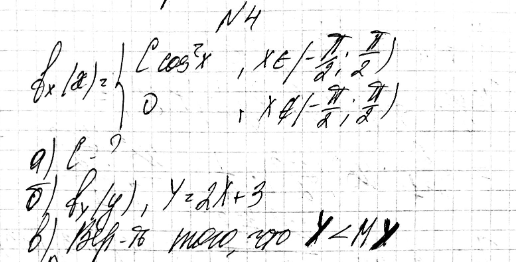 N4
fx(x) = { C cos²x , x∈(-π/2; π/2)
0 , x∉(-π/2; π/2)
а) C-?
б) fy(y), Y=2X+3
в) Вер-ть того, что X<MX